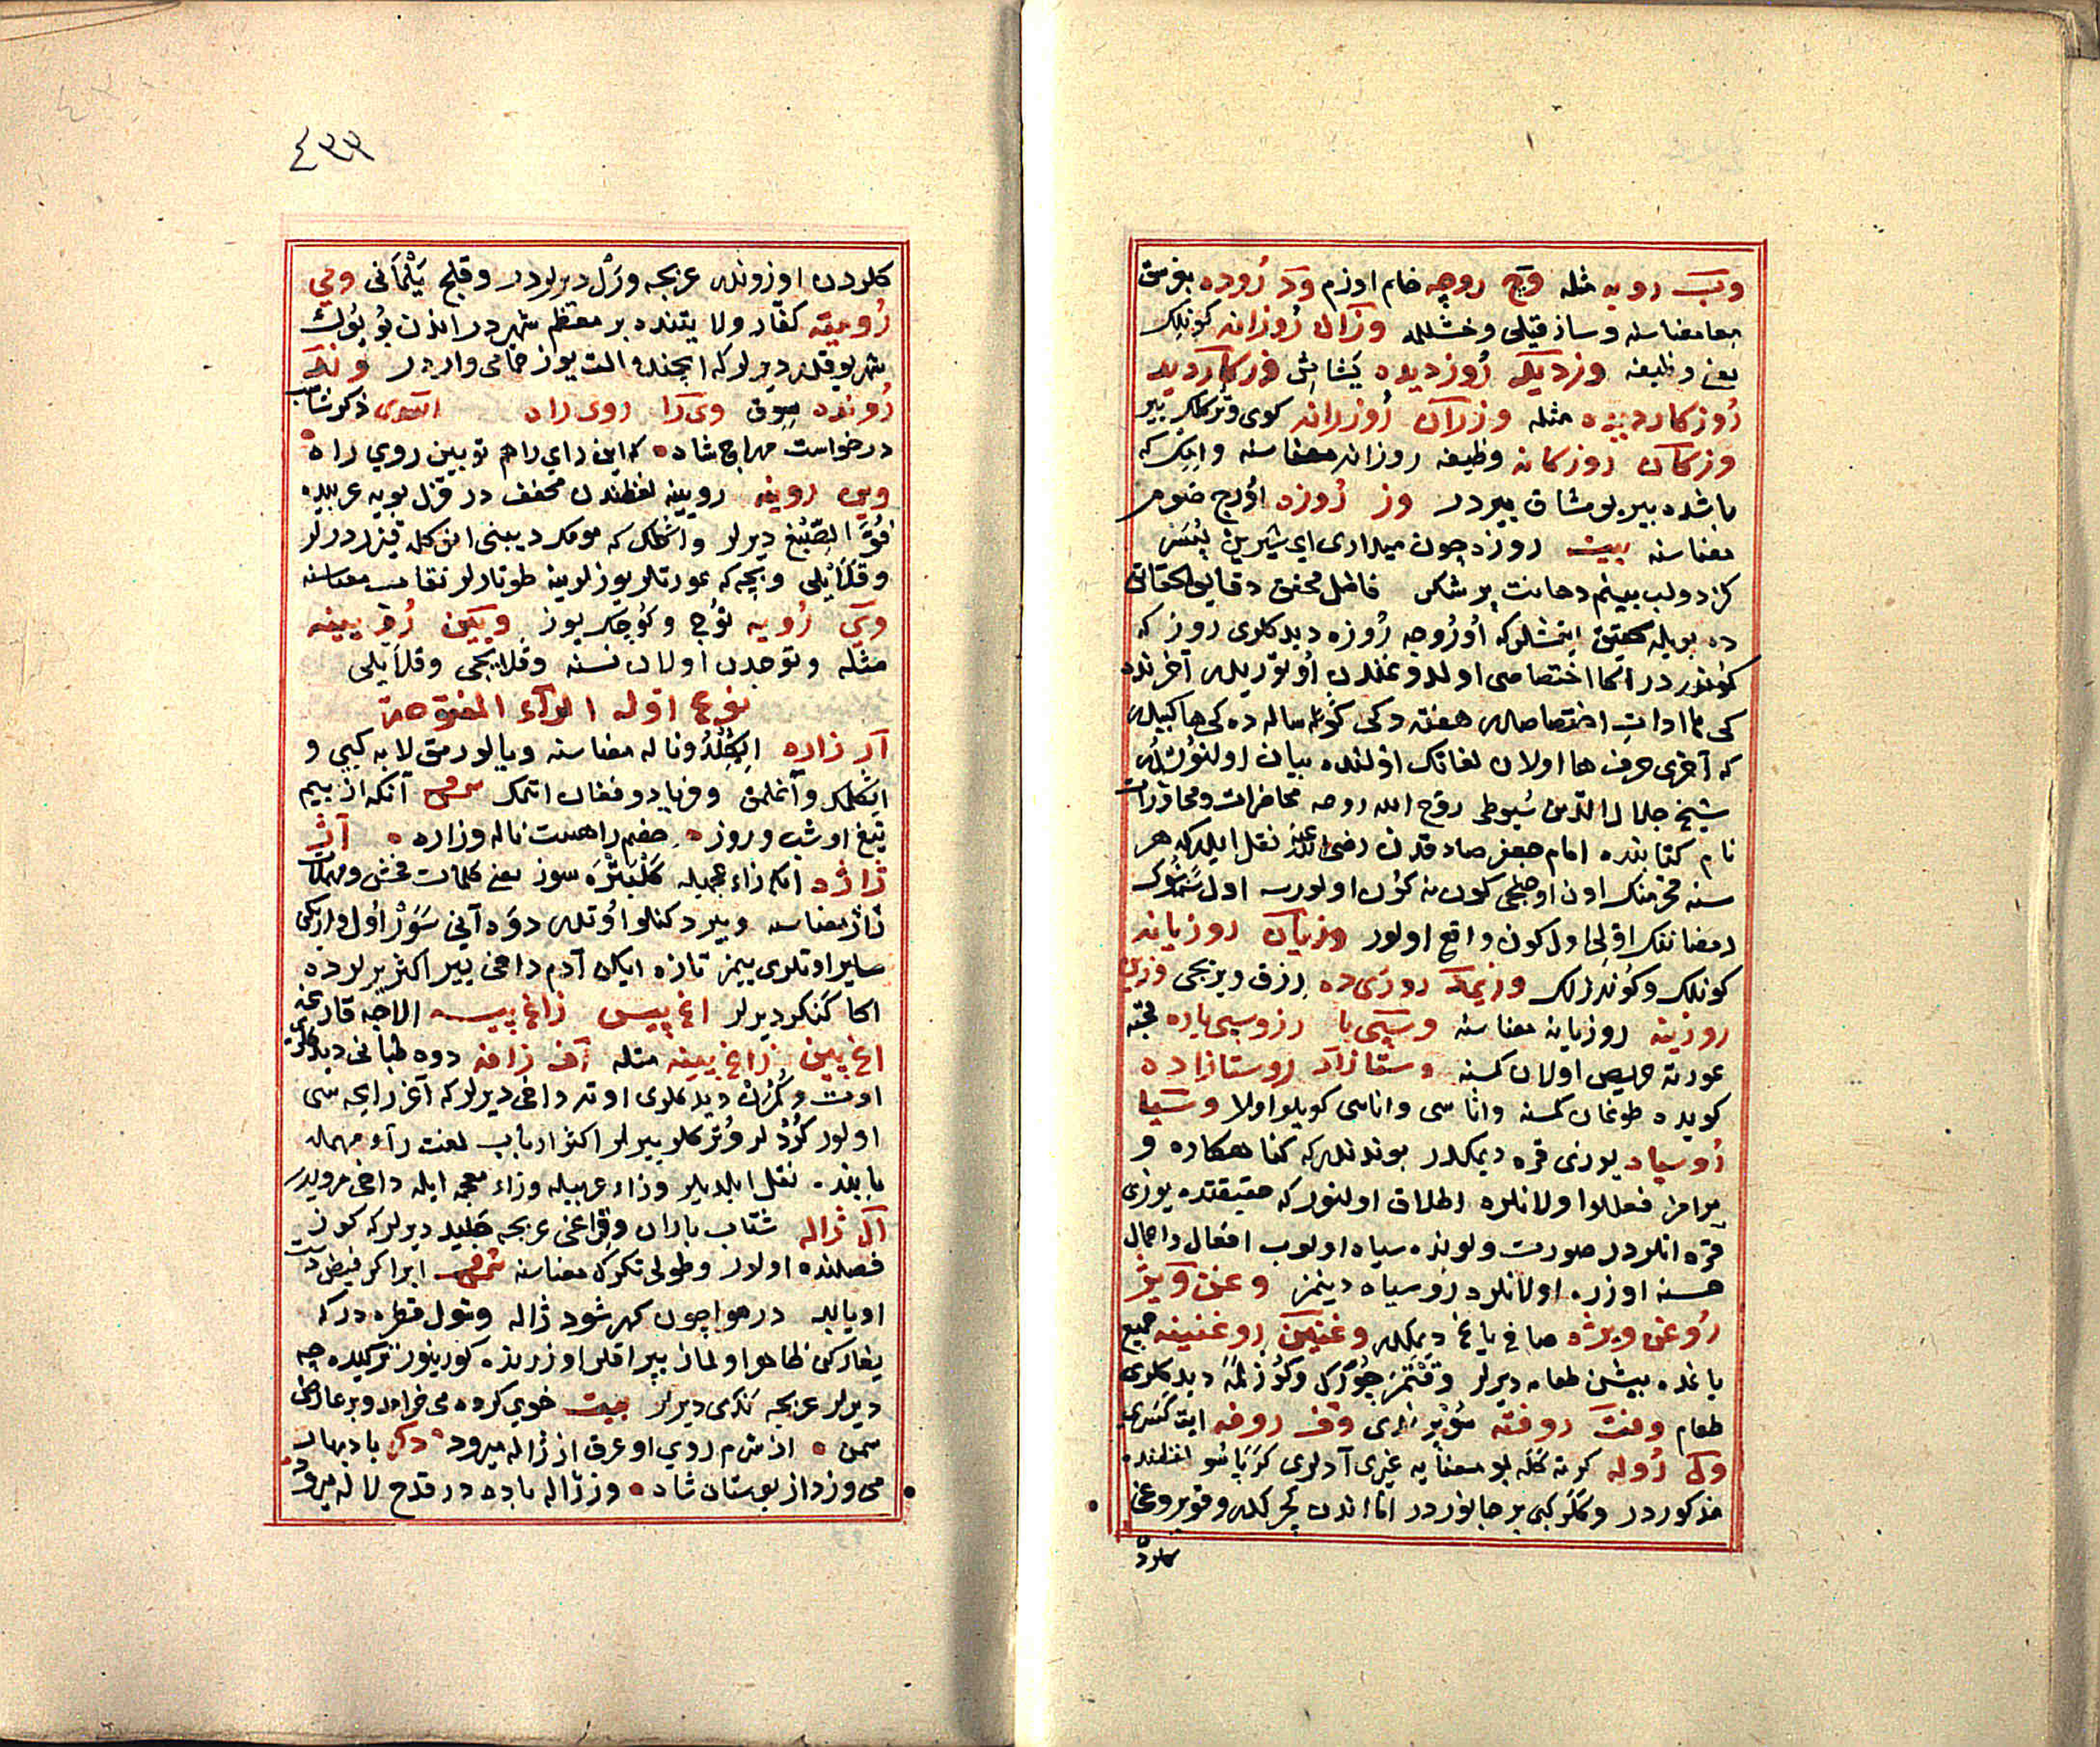 وب رويه مثله وچ روچه خام اوزم ود روده بغرسق
معا معناسنه وساز قیلی وخشلله وزان روزانه کونلك
یعنی وظیفه وزدیك روزدیده کشایش وزکاردید
روزکاردیده مثله وزران روزرانه کوی
وزکان روزکانه وظیفه روزانه معناسنه
باشده بیر بومشاق بیردر وز روزه اورج صوم
معناسنه بیت روزه چون میداری ای شیرین پسر
کزدولب بینم دهانت پر شکر فاضل محقق دقایق الحقایق
ده بویله تحقیق ایتمشلرکه اوروجه روزه دیدکلری روز که
کوندر در اکا اختصاصی اولدوغندن اوتوریدر آخرنده
کی ها ادات اختصاصدر هفته دکی کوبله ساله ده کی ها کبیدر
که آخری حرف ها اولان لغاتك اولنده بیان اولنور
شیخ جلال الدین سیوطی روح الله روحه محاضرات ومحاورات
نام کتابنده امام جعفر صادقدن رضی الله عنه نقل ایلدیکه هر
سنه محرمنك اون اوچنجی کون نه کون اولورسه اول سنه نك
رمضاننك اولی اول کون واقع اولور وزیان روزیانه
کونلك وکوندزلك وزیمد روزی ده رزق ویریجی وزین
روزینه روزیانه معناسنه وسپی با روسپی باره قحبه
عورته حریص اولان کمسنه وستازاد روستازاده
کویده طوغان کمسنه واتاسی واناسی کویلو اولا وسیا
روسیاه یوزی قره دیمکدر بوندندر که کناهکاره و
حرامز فعللو اولانلره اطلاق اولنور که حقیقتده یوزی
قره انلردر صورت ولونده سیاه اولوب افعال واعمال
حسنه اوزره اولانلره روسیاه دینمز وغن ویژ
روغن ویژه صافی یاغ دیمکدر وغنین روغنینه جمیع
یاغده بیشن طعامه دیرلر وقتمر چورك وکوزلمه دیدکلری
طعام وفت روفته سوپرلدی وف روفه
ول روله کرته کله بو معنایه غیری آدلری کرباسو لفظنده
مذکوردر وکلر کبی بر جانوردر اما اندن کچرکدر وقویروغی
کلردن
٤٣٣
کلردن اوزوندر عربجه ورل دیرلردر وقلیج یلمانی ومی
رومیه کفار ولایتنده بر معظم شهردر اندن بویوك
شهر یوقدر دیرلرکه ایچنده التیوز حمامی واردر وند
رونده سورن وی را روی راه اسدی ذکر شاب
درخواست مهراج شاه که این رای راهم تو بین روی راه
وین روینه رویینه لفظندن مخفف در قزل بویه عربیده
فوة الصبغ دیرلر
وقلایلی وپچه که عورتلر یوزلرینه طوتارلر نقاب معناسنه
ویی رویه توج وکوچك یوز ویین رویینه
مثله وتوجدن اولان نسنه وقلایجی وقلایلی
نوع اوله الزاء المفتوحة
آر زاره ایکلدو وناله معناسنه ویالورمق لابه کبی و
ایکلمك وآغلمق وفریاد وفغان اتمك شرفی آنکه از بیم
تیغ او شب وروز خصم راهست ناله وزاره آژ
ژاژه انکه زاء عجمیله کلپتره سوز یعنی کلمات فحش ومهملات
ژاژ معناسنه وبیر دکنلو اوتدر دوه آنی سور اول
سایر اوتلری ییمز تازه ایکن آدم داخی ییر اکثر یرلرده
اکا کنکر دیرلر اغ پیس زاغ پیسه الاجه قارغه
اغ پین زاغ پینه مثله آف زافه دوه طبانی دیدکلری
اوت وکزن دیدکلری اوته داخی دیرلرکه آغز رایحه سی
اولور کردلر وترکلر ییرلر اکثر ارباب لغت راء مهمله
بابنده نقل ایلدیلر وزاء عربیله وزاء معجمه ایله داخی مرویدر
آل ژاله شتاب باران وقراغی عربجه جلید دیرلرکه کوز
فصلنده اولور وطولی تکرك معناسنه شرفی ابر اکر فیض دست
اویابد در هوا چون کهر شود ژاله وشول قطره درکه
یغارکن ظاهر اولماز یپراقلر اوزرنده کورینور ترکیده چه
دیرلر عربجه ندی دیرلر بیت خوی کرده می خرامد وبر عارض
سمن از شرم روی او عرق از ژاله میرود دکر باد بهار
می وزد از بوستان شاه وز ژاله باده در قدح لاله میرود